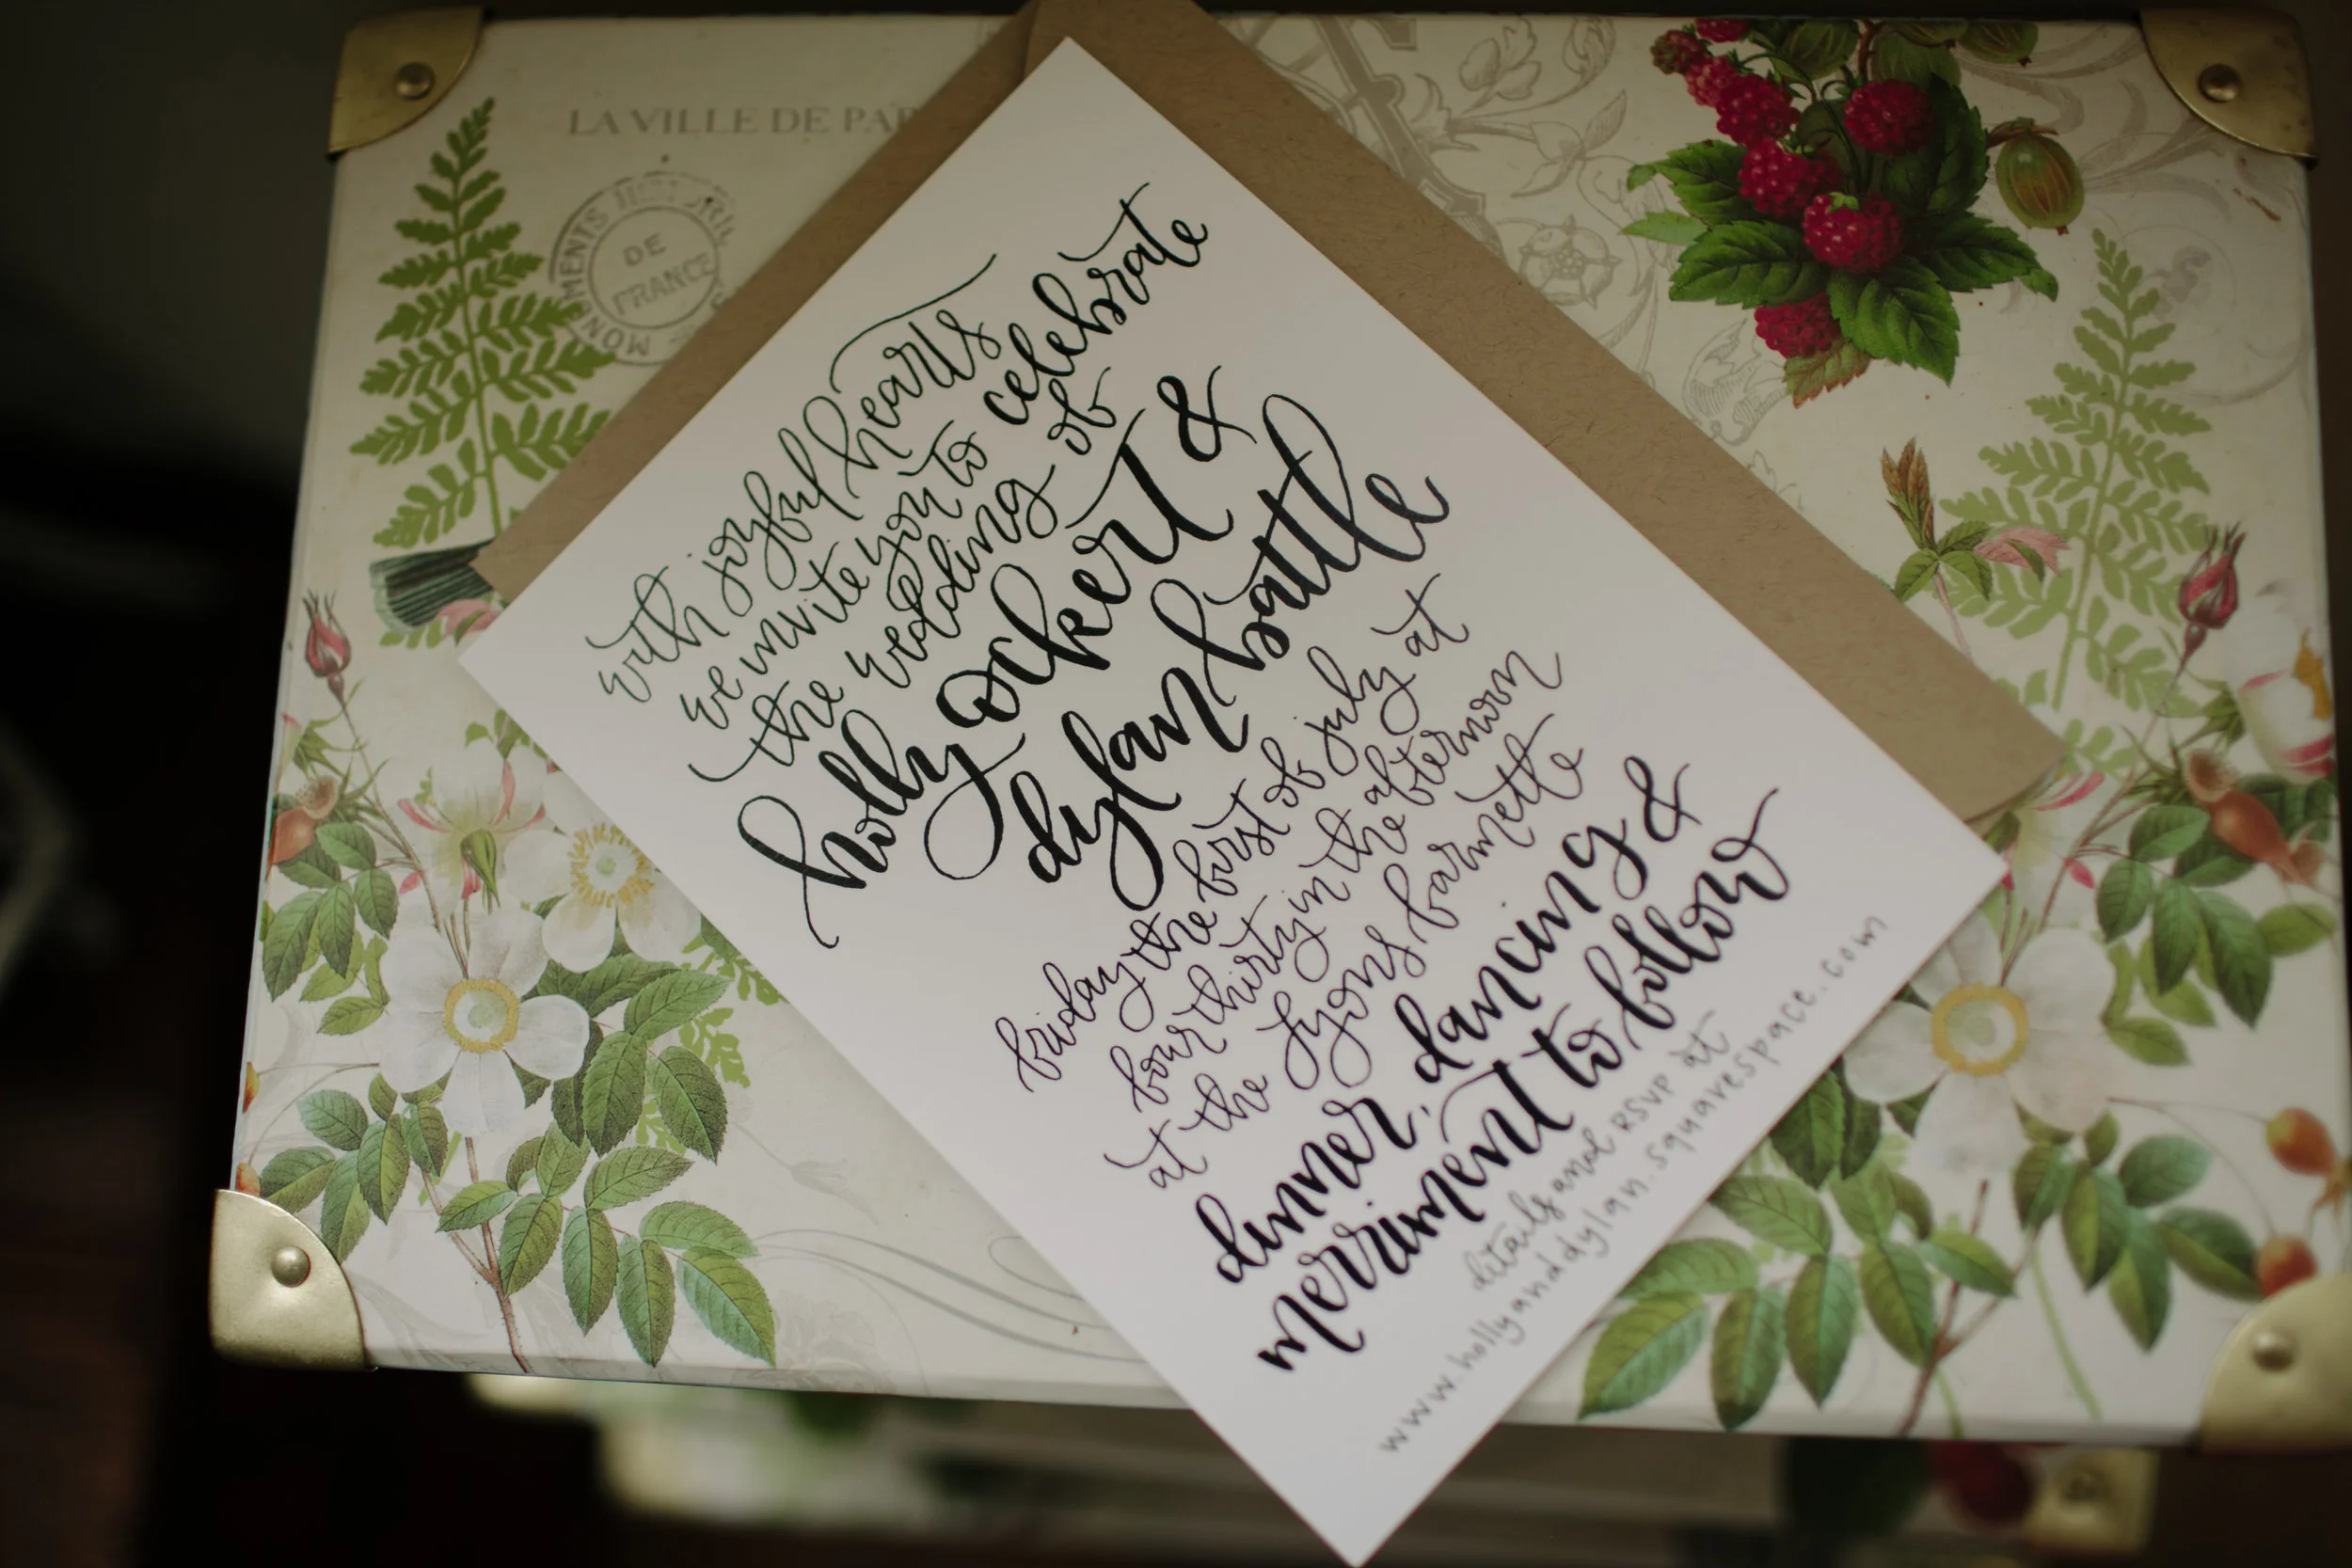 LA VILLE DE PAR
MONUMENTS
DE
FRANCE
with joyful hearts
we invite you to celebrate
the wedding of
holly ockert &
dylan battle
friday the first of july at
four thirty in the afternoon
at the lyons farmette
dinner, dancing &
merriment to follow
details and RSVP at
www.hollyanddylan.squarespace.com